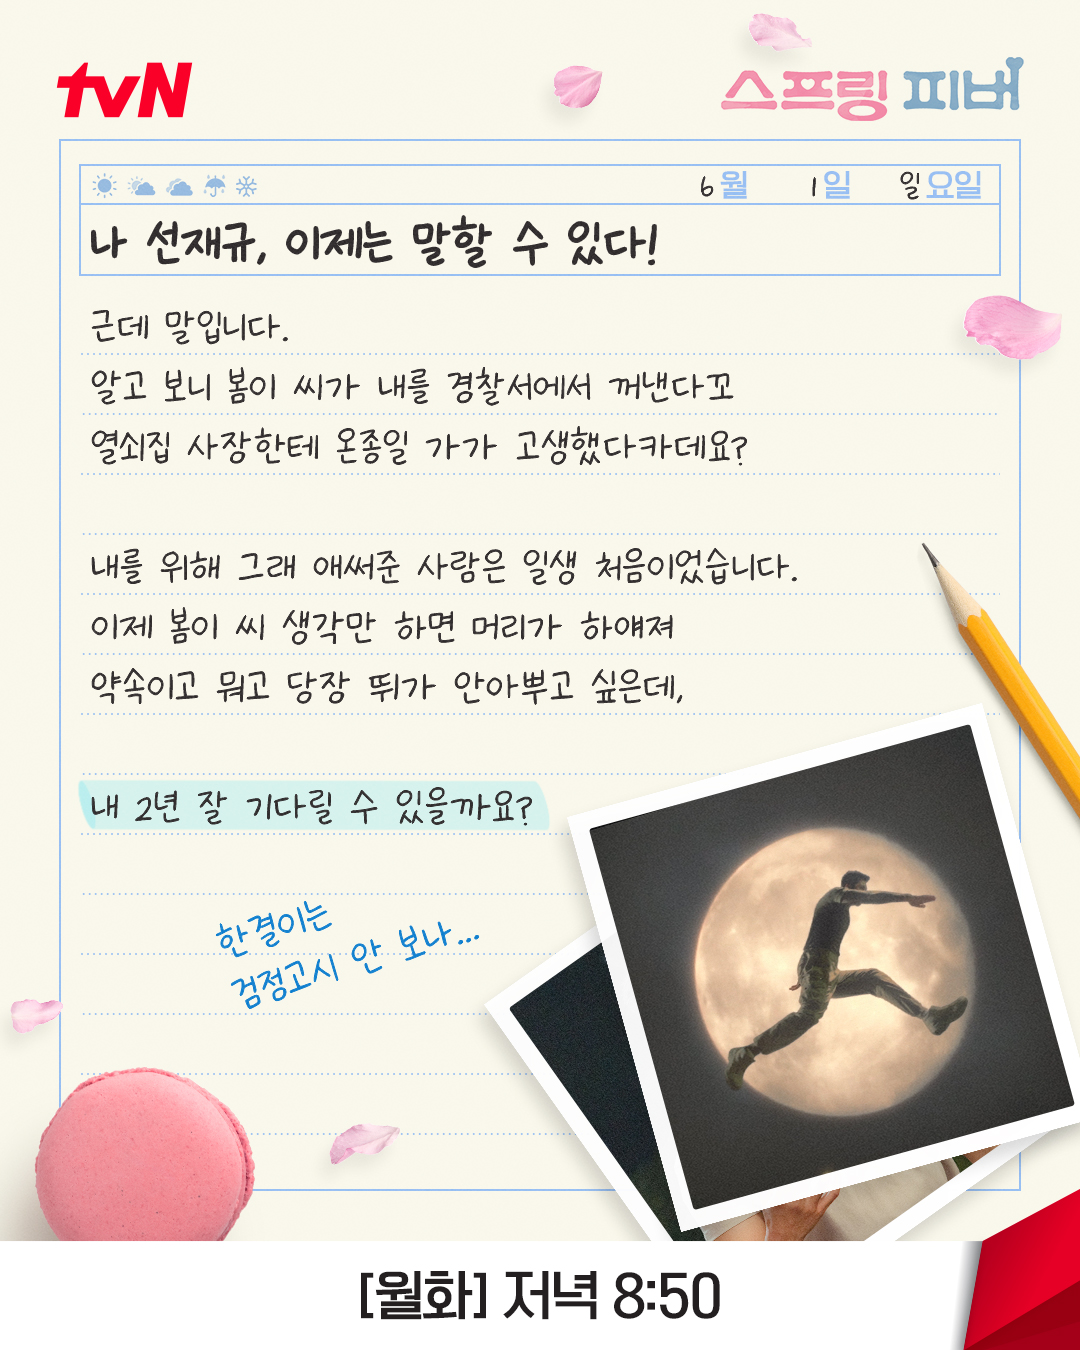 tvN
스프링 피버
6월 1일 일요일
나 선재규, 이제는 말할 수 있다!
근데 말입니다.
알고 보니 봄이 씨가 내를 경찰서에서 꺼낸다꼬
열쇠집 사장한테 온종일 가가 고생했다카데요?
내를 위해 그래 애써준 사람은 일생 처음이었습니다.
이제 봄이 씨 생각만 하면 머리가 하얘져
약속이고 뭐고 당장 뛰가 안아뿌고 싶은데,
내 2년 잘 기다릴 수 있을까요?
한결이는
검정고시 안 보나...
[월화] 저녁 8:50